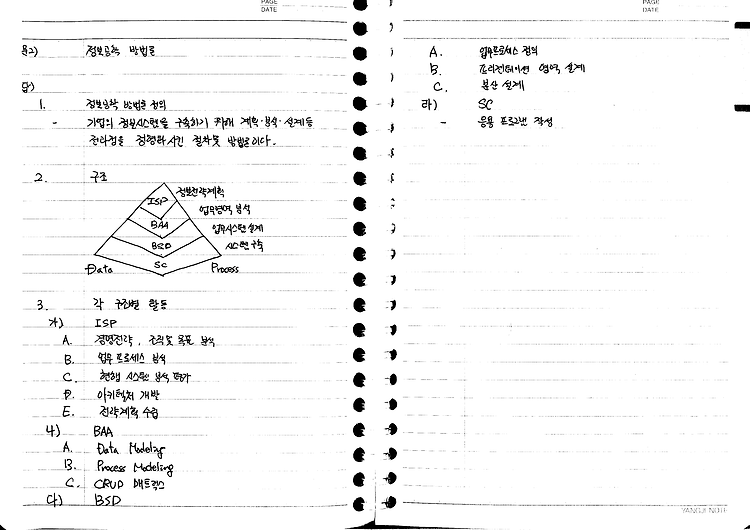 PAGE
DATE
문2) 정보공학 방법론
답)
1. 정보공학 방법론 정의
- 기업의 정보시스템을 구축하기 위해 계획·분석·설계등
전과정을 정형화시킨 절차및 방법론이다.
2. 구조
ISP 정보전략계획
BAA 업무영역 분석
BSD 업무시스템 설계
SC 시스템 구축
Data Process
3. 각 구조별 활동
가) ISP
A. 경영전략, 조직및 목표 분석
B. 업무 프로세스 분석
C. 현행 시스템 분석 평가
D. 아키텍처 개발
E. 전략계획 수립
나) BAA
A. Data Modeling
B. Process Modeling
C. CRUD 매트릭스
다) BSD
PAGE
DATE
A. 업무프로세스 정의
B. 프리젠테이션 영역 설계
C. 분산 설계
라) SC
- 응용 프로그램 작성
YANGJI NOTE